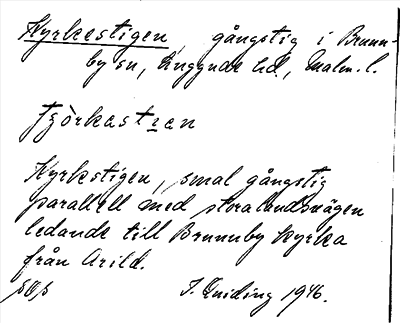 Kyrkestigen, gångstig i Brunn-
by sn, Luggude hd., Malm. l.
Kyrkstigen, smal gångstig
parallell med stora landsvägen
ledande till Brunnby kyrka
från Arild.
J. Eniding 1946.